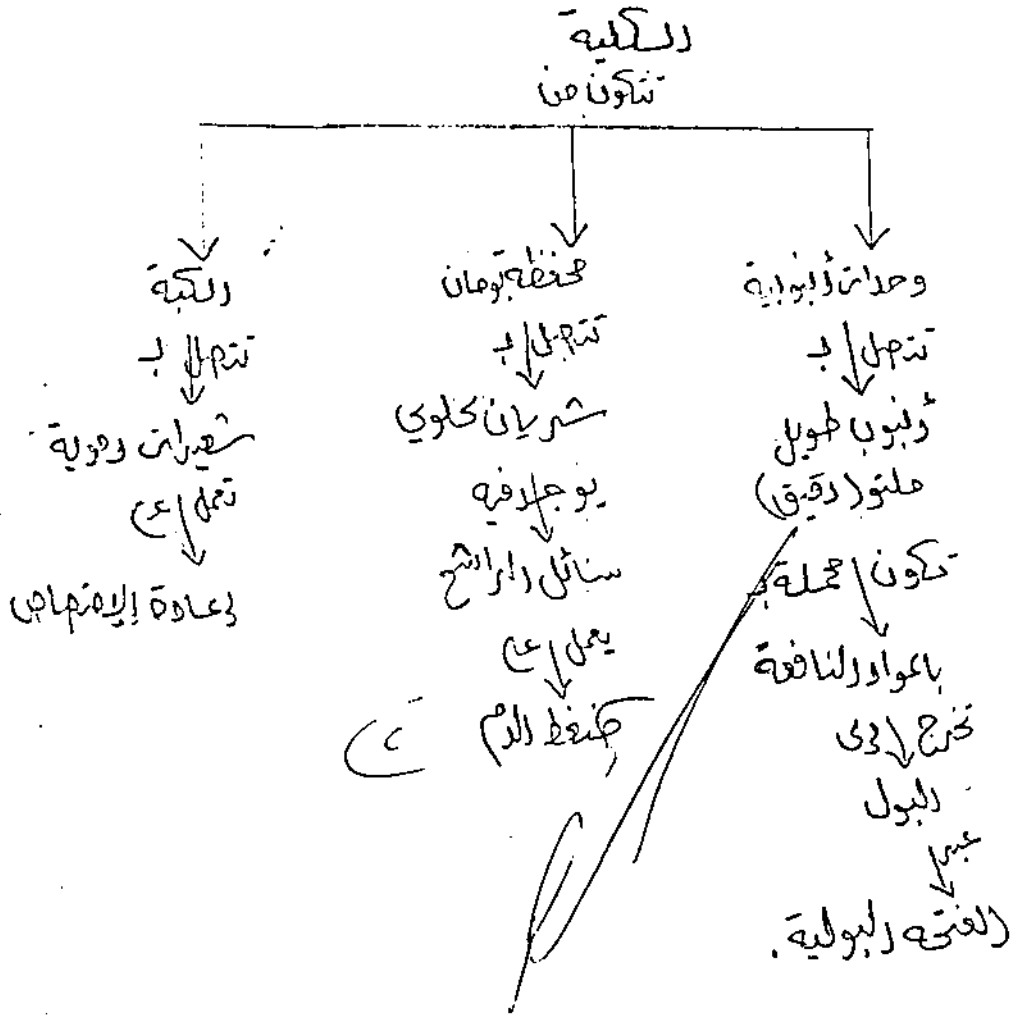 الكلية
تتكون من
وحدات أنبوبية
تتصل بـ
أنبوب طويل
ملتو (دقيق)
تكون محملة بـ
بالمواد النافعة
تخرج إلى
البول
عبر
الفتحه البولية.
محفظة بومان
تتصل بـ
شريان كلوي
يوجد فيه
سائل الراشح
يعمل على
ضغط الدم
الكبة
تتصل بـ
شعيرات دموية
تعمل على
إعادة الإمتصاص